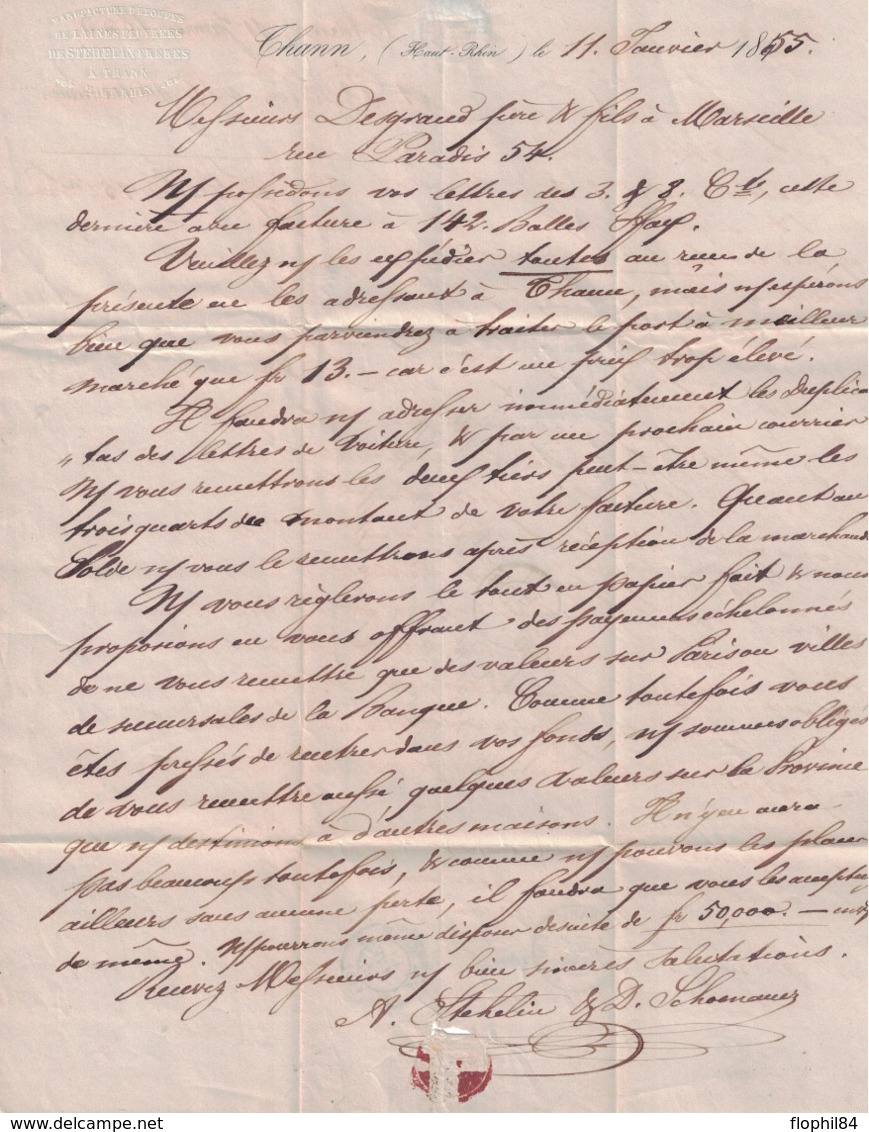 MANUFACTURE D'ETOFFES
DE LAINES FEUTREES
DE STEHELIN FRERES
A THANN
HAUT-RHIN
Thann, (Haut-Rhin) le 11. Janvier 1855.
Messieurs Desgrand père & fils à Marseille
rue Paradis 54.
Ns possédons vos lettres des 3. & 8. Ct, cette
dernière avec facture à 142. Balles
Veuillez ns les expédier toutes au reçu de la
présente en les adressant à Thann, mais ns espérons
bien que vous parviendrez à traiter le port à meilleur
marché que fr 13. — car c'est un prix trop élevé.
Il faudra ns adresser immédiatement les Duplica
"tas des lettres de voiture, & par un prochain courrier
Ns vous remettrons les deux tiers peut-être même les
trois quarts du montant de votre facture. Quant au
Solde ns vous le remettrons après réception de la marchand
Ns vous règlerons le tout en papier fait & nous
proposions en vous offrant des payemens échelonnés
de ne vous remettre que des valeurs sur Paris ou villes
de succursales de la Banque. Comme toutefois vous
êtes pressés de rentrer dans vos fonds, ns sommes obligés
de vous remettre aussi quelques valeurs sur la Province
que ns destinions à d'autres maisons. Il n'y en aura
pas beaucoup toutefois, & comme ns pouvons les placer
ailleurs sans aucune perte, il faudra que vous les acceptiez
de même. Ns pourrons même disposer de suite de fr 50,000. —
Recevez Messieurs ns bien sincères salutations.
A. Stehelin & D. Schoenauer
flophil84